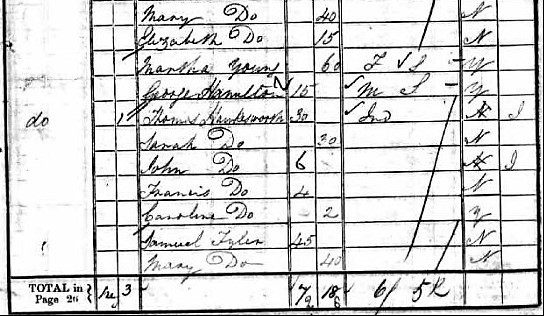 Mary Do 40 N
Elizabeth Do 15 N
Martha Young 60 F S Y
George Hamilton 15 M S Y
do 1 Thomas Hawkesworth 30 Ind N I
Sarah Do 30 N
John Do 6 N I
Francis Do 4 N
Caroline Do 2 Y
Samuel Tyler 45 N
Mary Do 40 N
TOTAL in Page 26 } 3 17 18 6/ 52